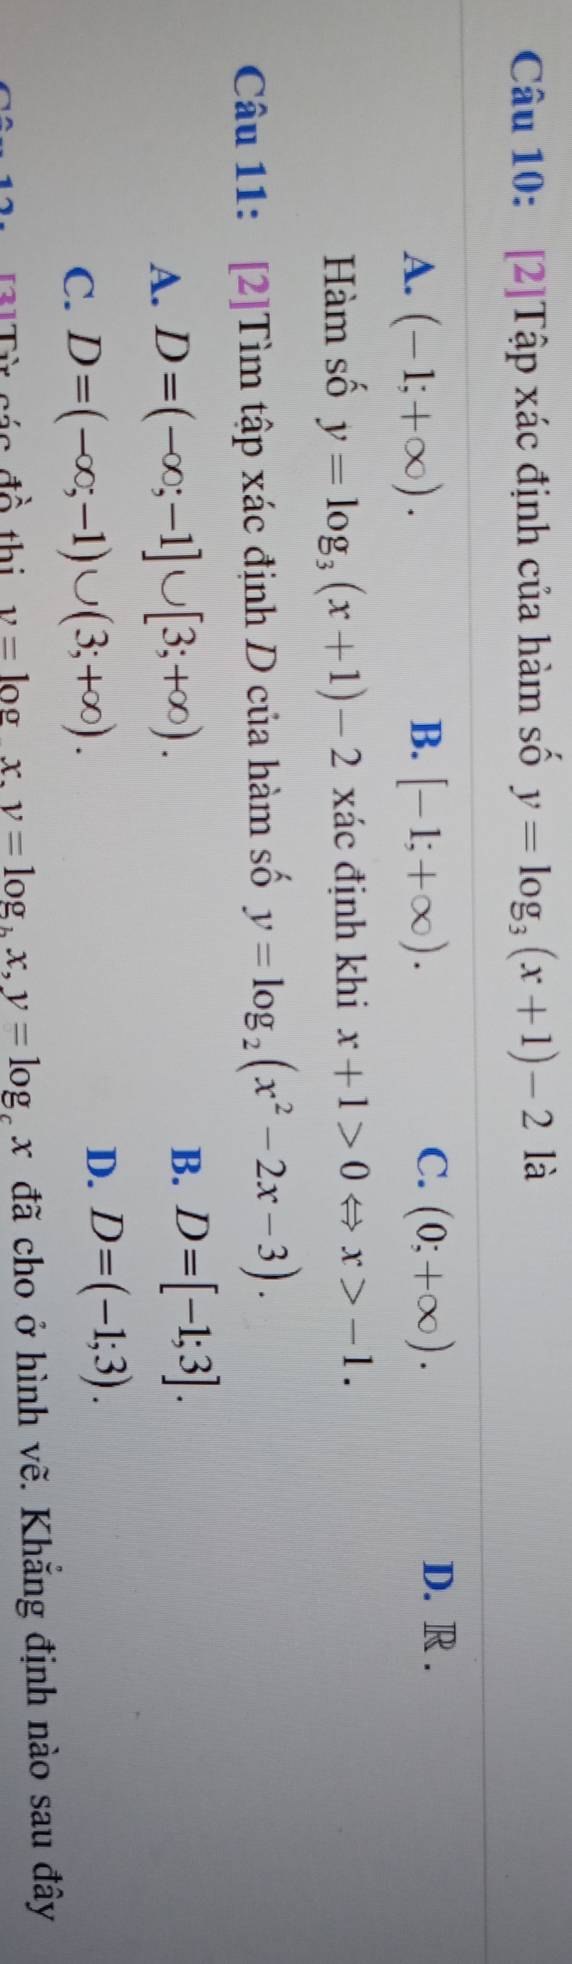 Câu 10: [2]Tập xác định của hàm số y = log₃(x+1)−2 là
A. (−1;+∞). B. [−1;+∞). C. (0;+∞). D. ℝ.
Hàm số y = log₃(x+1)−2 xác định khi x+1>0⇔x>−1.
Câu 11: [2]Tìm tập xác định D của hàm số y = log₂(x²−2x−3).
A. D=(−∞;−1]∪[3;+∞). B. D=[−1;3].
C. D=(−∞;−1)∪(3;+∞). D. D=(−1;3).
[3]Từ các đồ thị y = log x, y = log_b x, y = log_c x đã cho ở hình vẽ. Khẳng định nào sau đây